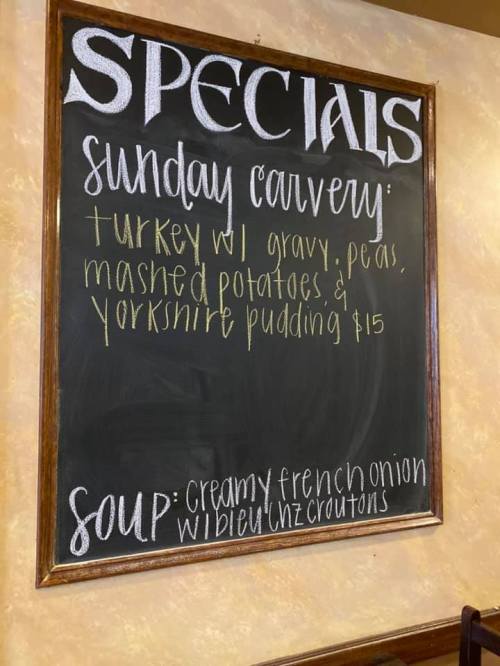 SPECIALS
Sunday carvery:
turkey w/ gravy, peas,
mashed potatoes, &
yorkshire pudding $15
Soup: creamy french onion
w/bleu chz croutons